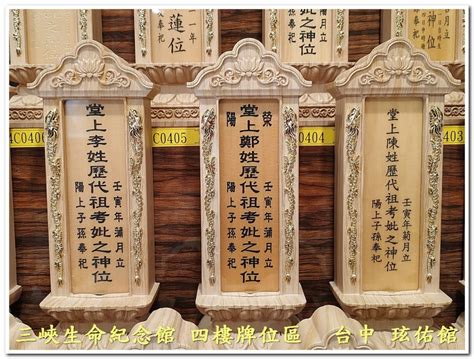 一年
蓮位
奉祀
之神位
奉祀
月立
4C0406
C0405
0404
4C403
堂上李姓歷代祖考妣之神位
壬寅年蒲月立
陽上子孫奉祀
滎陽
堂上鄭姓歷代祖考妣之神位
壬寅年蒲月立
陽上子孫奉祀
堂上陳姓歷代祖考妣之神位
壬寅年菊月立
陽上子孫奉祀
三峽生命紀念館 四樓牌位區 台中 玹佑館